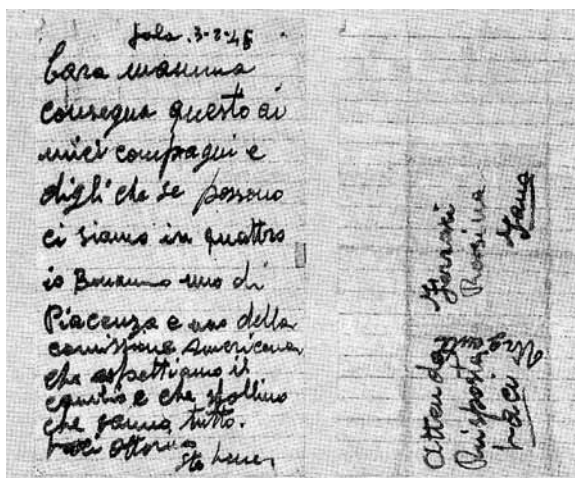 3-2-45
Cara mamma
consegna questo ai
miei compagni e
digli che se possono
ci siamo in quattro
io uno di
Piacenza e uno della
comissione Americana
che aspettiamo il
cambio e che
che sanno tutto.
baci
Sto bene
Attendo
Risposta
baci
Rosina
Urgente